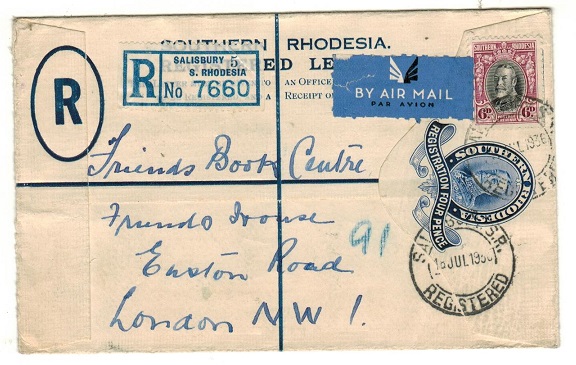 SOUTHERN RHODESIA.
SALISBURY 5
S. RHODESIA
R No 7660
R
BY AIR MAIL
PAR AVION
SOUTHERN RHODESIA
6D 6D
SOUTHERN RHODESIA.
REGISTRATION FOUR PENCE
TO AN OFFICE
RECEIPT
Friends Book Centre
Friends House
Euston Road
London N W 1.
91
JUL 193
REGISTERED